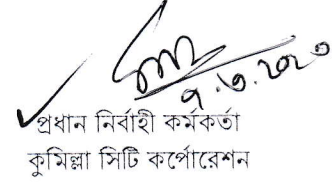 ৭.৩.২০২৩
প্রধান নির্বাহী কর্মকর্তা
কুমিল্লা সিটি কর্পোরেশন